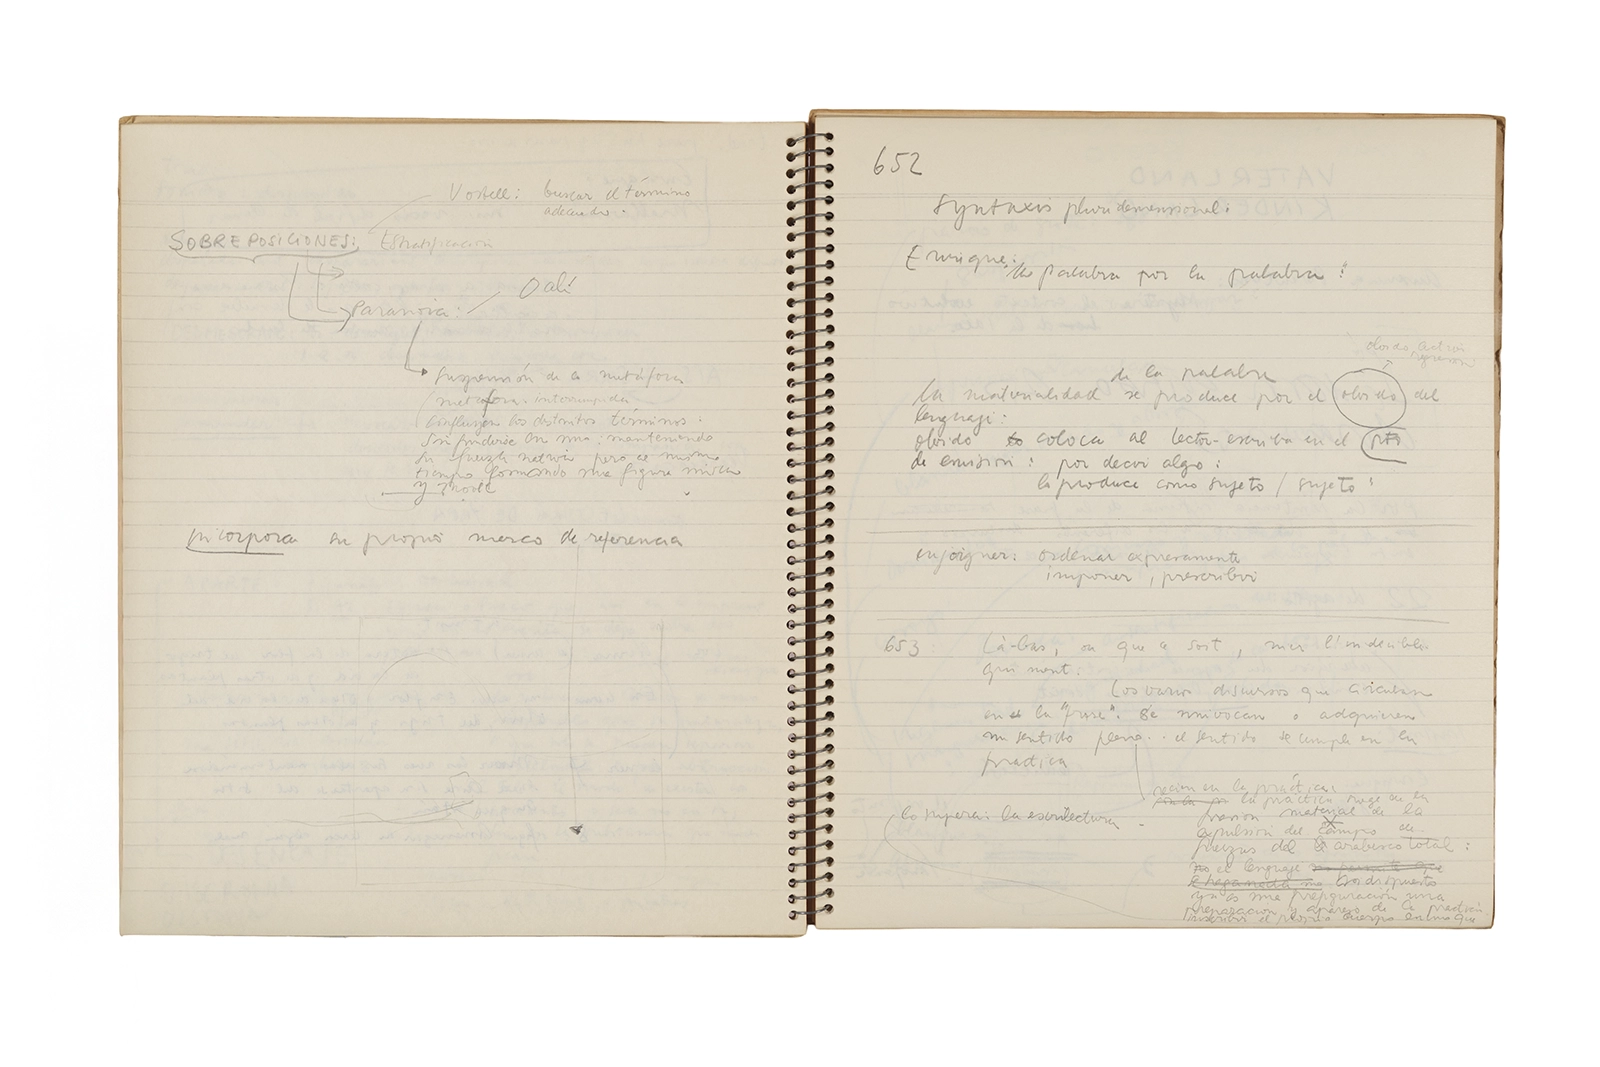 Vostell: buscar el término
adecuado.
SOBREPOSICIONES: Estratificación
Paranoia: Dalí
Suspensión de la metáfora
metáfora interrumpida
confluyen los distintos términos.
Sin fundirse en una: manteniendo
su fuerza nativa pero al mismo
tiempo formando una figura mixta
y
incorpora su propio marco de referencia
652
Syntaxis pluridimensional:
Enrique:
"la palabra por la palabra":
olvido, activo
de la palabra
la materialidad se produce por el olvido del
lenguaje:
olvido coloca al lector-escriba en el pto
de emisión: por decir algo:
la produce como sujeto / sujeto
enjoigner: ordenar expresamente
imponer, prescribir
653 Là-bas, ou que ce soit, nier l'indicible
qui ment.
Los varios discursos que circulan
en la "frase". Se univocan o adquieren
un sentido pleno.. el sentido se cumple en la
practica
recien en la práctica:
la práctica surge de la
presión material de la
expulsión del campo de
fuerzas del arabesco total:
lo supera: la escrilectura
no el lenguaje
ya es una prefiguración una
preparacion y apareo de la practica